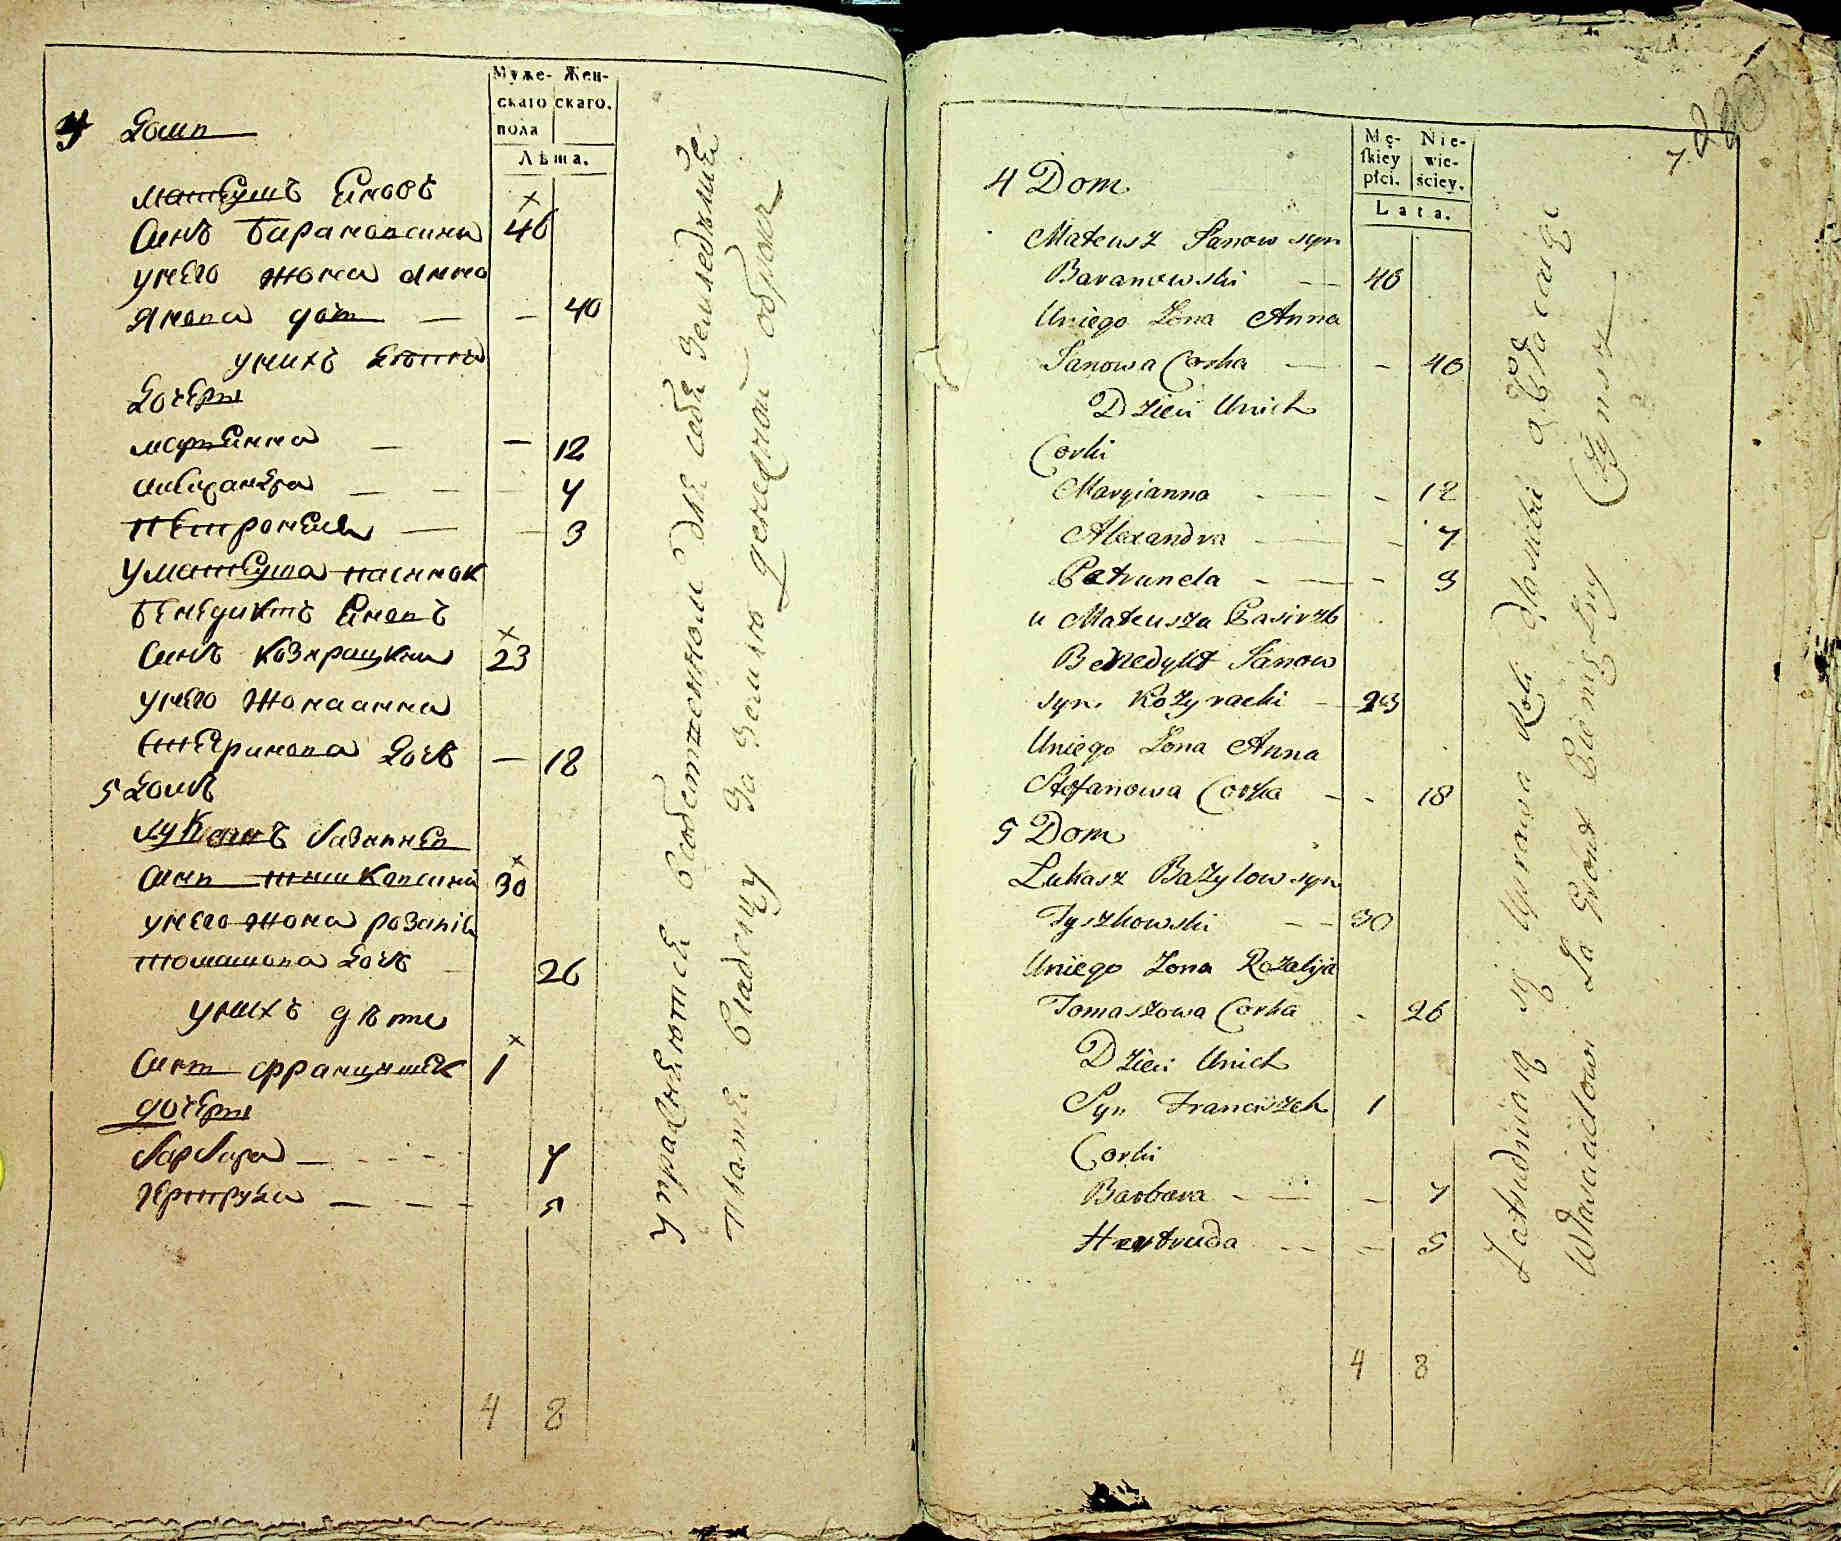 Муже- Жен-
скаго скаго.
пола
Лѣта.
4 Домъ
Матеушъ Яновъ
Синъ Барановскии 46
унего жона анна
Янова доч — — 40
унихъ дѣти
Дочери
марянна — — 12
александра — — 7
Петронеля — — 3
уматеуша пасинок
Бенедиктъ Яновъ
Синъ Козирацкии 23
унего Жона анна
Стефанова Дочь — 18
5 Домъ
лукашъ базилев
Синъ тишковскии 30
унего жона розалия
томашова Дочь 26
унихъ дѣти
Синъ францишек 1
дочери
барбара — 7
гертруда — 5
4 8
упражняются собственном для себя земледѣлии
платя владелцу за землю денежнои оброкъ
220
7
Mę- Nie-
skiey wie-
płci. ściey.
Lata.
4 Dom
Mateusz Janow syn
Baranowski — 46
Uniego Zona Anna
Janowa Corka — - 40
Dzieci Unich
Corki
Maryianna - — - 12
Alexandra - — - 7
Petrunela - — - 3
u Mateusza Pasirzb
Benedykt Janow
syn Kozyracki — 23
Uniego Zona Anna
Stefanowa Corka - - 18
5 Dom
Lukasz Bazylow syn
Tyszkowski — 30
Uniego Zona Rozalija
Tomaszowa Corka - 26
Dzieci Unich
Syn Franciszek 1
Corki
Barbara - — - 7
Hertruda - - - 5
4 8
Zatrudniaią się Uprawą Roli dla siebie oddaiąc
Właścicielowi Za Grunt Pieniężny Czynsz